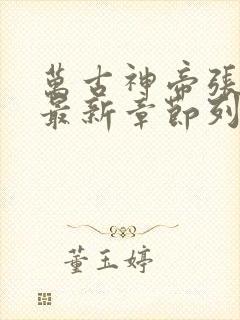 萬古神帝張
最新章節列
董玉婷